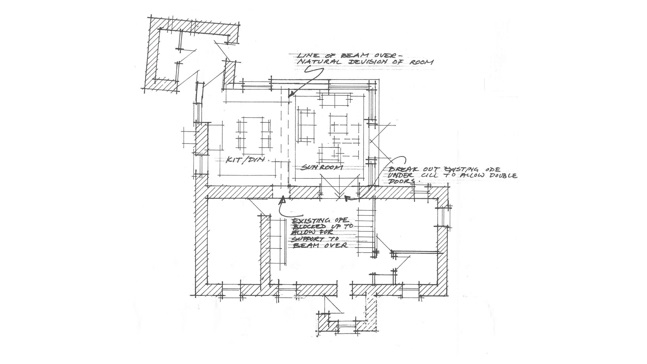 LINE OF BEAM OVER -
NATURAL DEVISION OF ROOM
KIT/DIN.
SUNROOM
BREAK OUT EXISTING OPE
UNDER CILL TO ALLOW DOUBLE
DOORS.
EXISTING OPE
BLOCKED UP TO
ALLOW FOR
SUPPORT TO
BEAM OVER